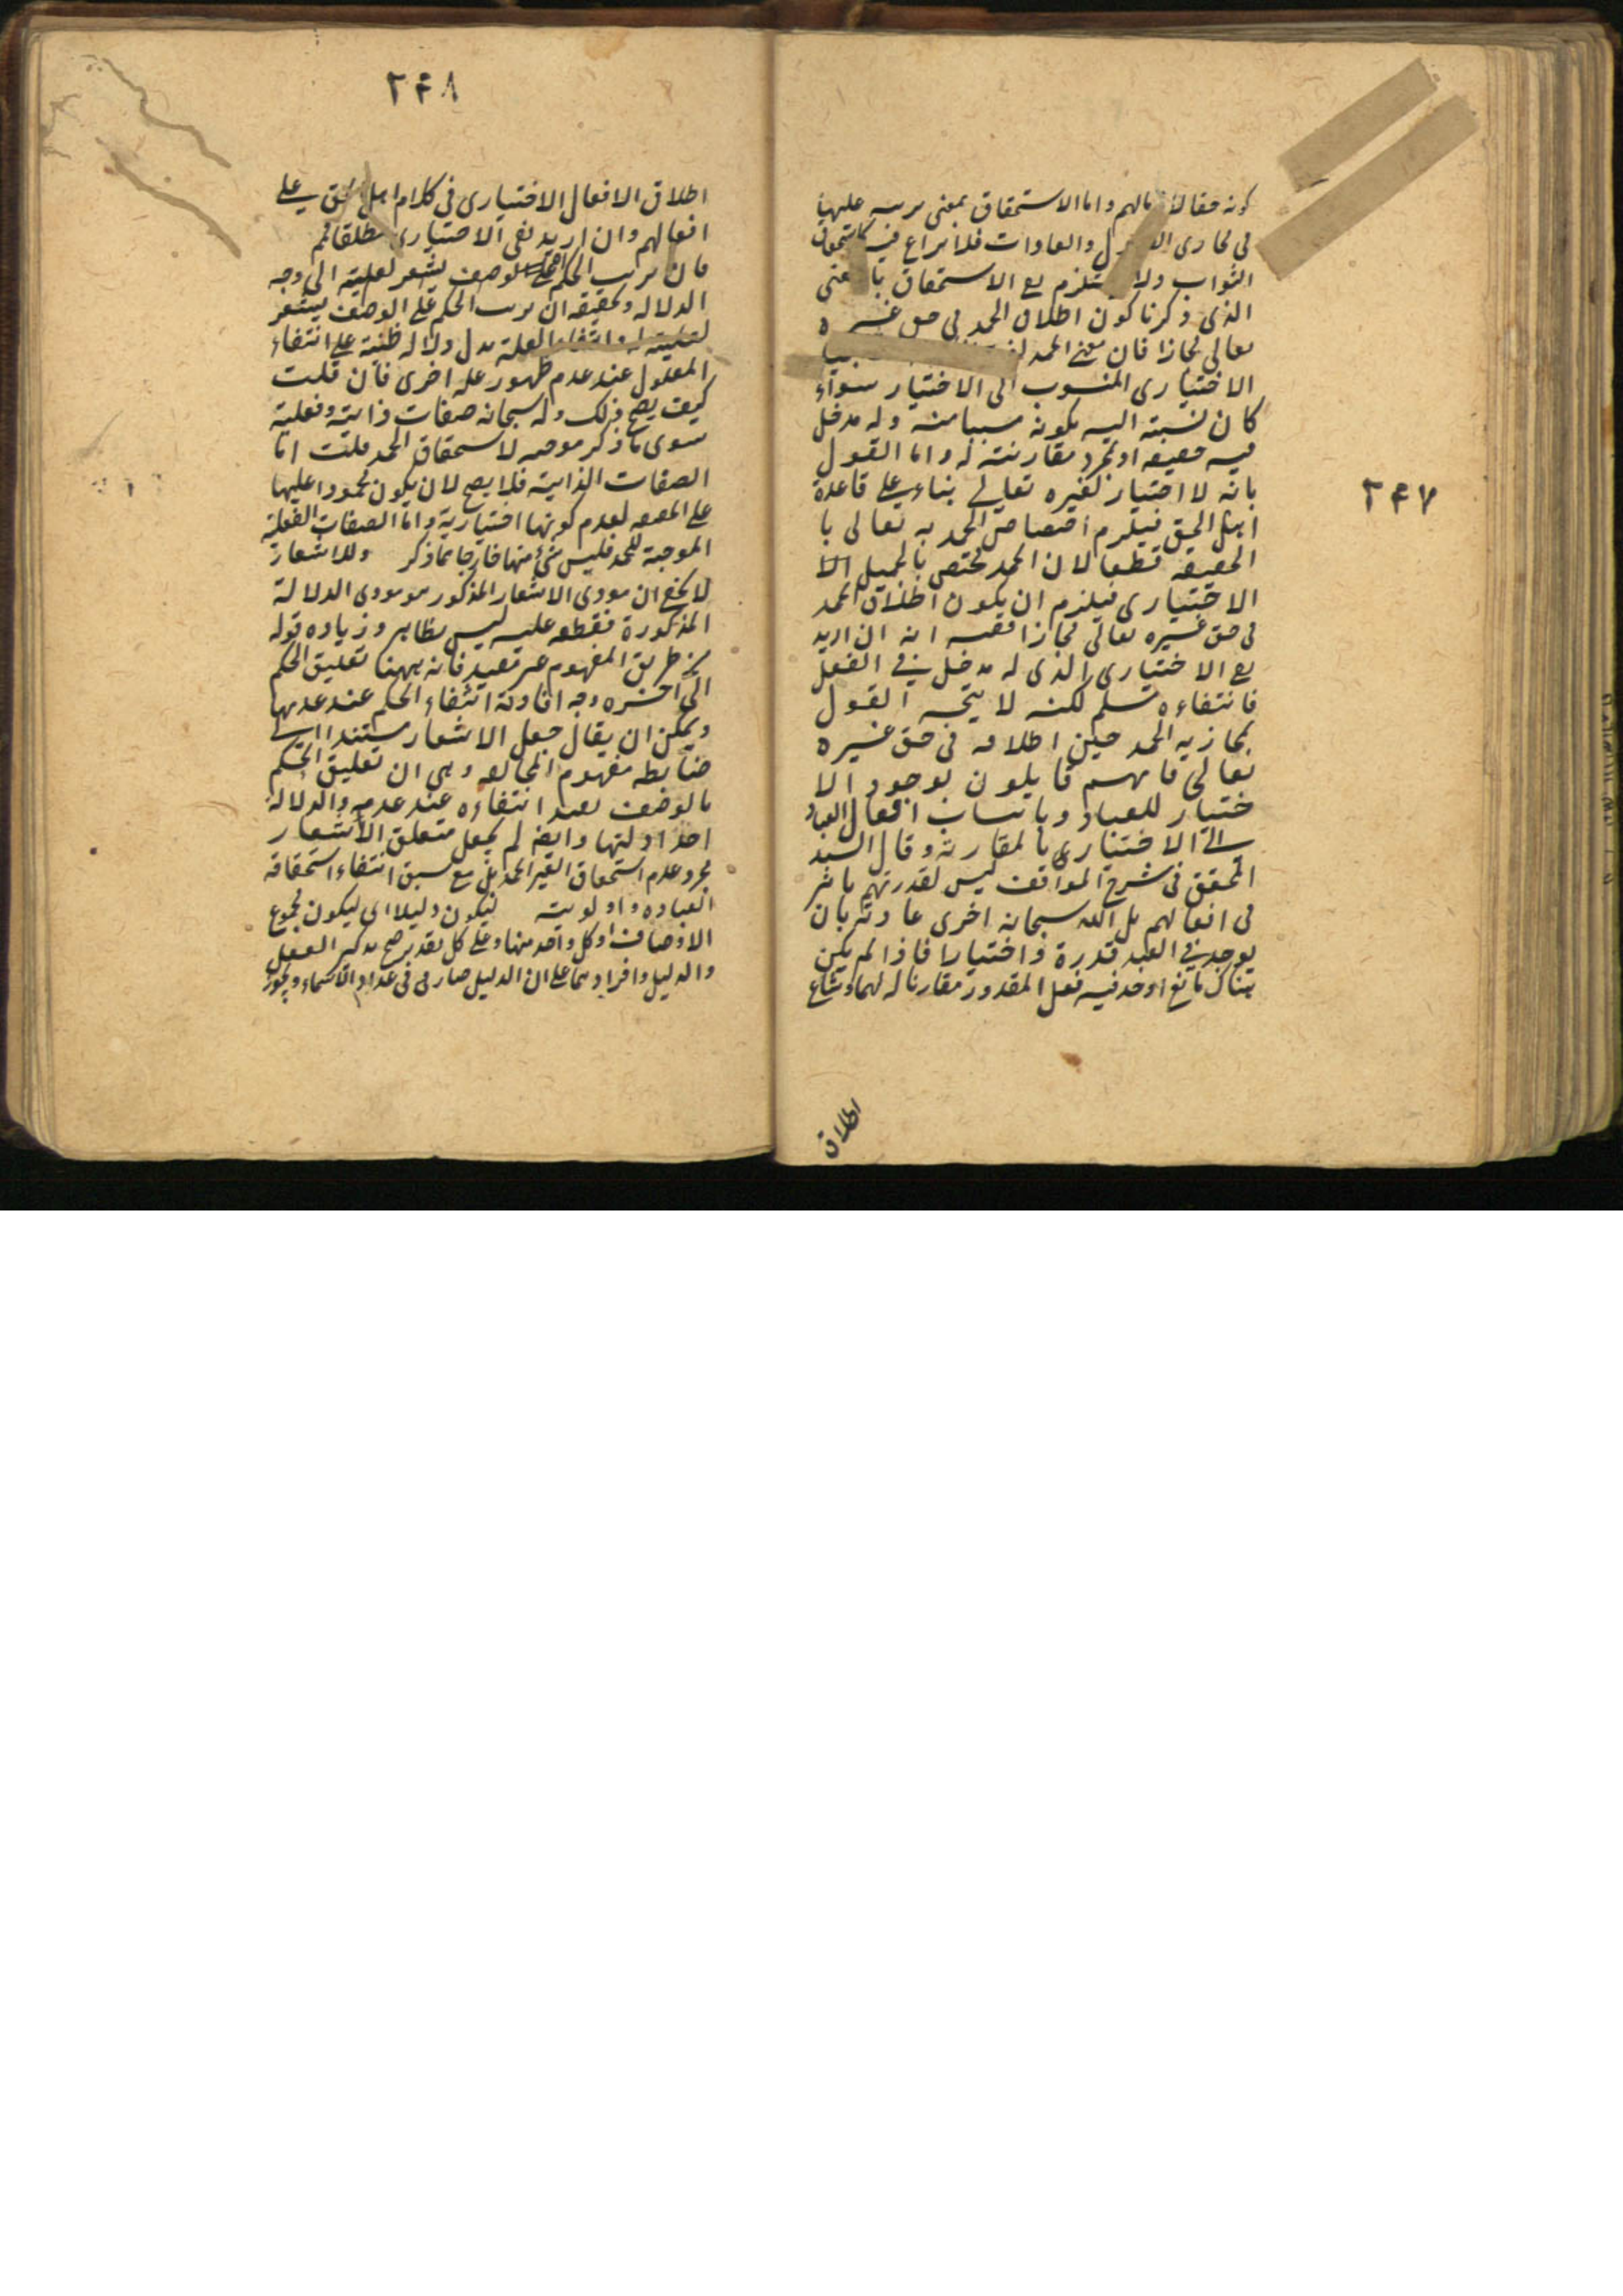 ٢٤٧
كونه حقا لافعالهم واما الاستحقاق بمعنى ترتبه عليها
فى مجارى العقول والعادات فلا نزاع فيه كاستحقاق
الثواب ولا يستلزم نفى الاستحقاق بالمعنى
الذى ذكرنا كون اطلاق الحمد فى حق غيره
تعالى مجازا فان معنى الحمد
الاختيارى المنسوب الى الاختيار سواء
كان نسبته اليه بكونه سببا منه وله مدخل
فيه حقيقه او بمجرد مقارنته له واما القول
بانه لا اختيار لغيره تعالى بناء على قاعدة
اهل الحق فيلزم اختصاص الحمد به تعالى با
الحقيقه قطعا لان الحمد مختص بالجميل الا
الاختيارى فيلزم ان يكون اطلاق الحمد
فى حق غيره تعالى مجازا ففيه انه ان اريد
نفى الاختيارى الذى له مدخل فى الفعل
فانتفاءه مسلم لكنه لا يتجه القول
بمجازيه الحمد حين اطلاقه فى حق غيره
تعالى فانهم قايلون بوجود الا
ختيار للعباد وبانتساب افعال العباد
الى الاختيارى بالمقارنه وقال السيد
المحقق فى شرح المواقف ليس لقدرتهم تاثير
فى افعالهم بل الله سبحانه اجرى عادته بان
يوجد فى العبد قدرة واختيارا فاذا لم يكن
هناك مانع اوجد فيه فعل المقدور مقارنا لهما وشاع
اطلاق
٢٤٨
اطلاق الافعال الاختيارى فى كلام اهل الحق على
افعالهم وان اريد نفى الاختيارى مطلقا فم
فان ترتب الحكم على الوصف يشعر لعليته الى وجه
الدلاله وتحقيقه ان ترتب الحكم على الوصف يشعر
لعليته له وانتفاء العلة يدل دلاله ظنية على انتفاء
المعلول عند عدم ظهور علة اخرى فان قلت
كيف يصح ذلك وله سبحانه صفات ذاتية وفعلية
سوى ما ذكر موجبه لاستحقاق الحمد قلت اما
الصفات الذاتية فلا يصح لان يكون محمودا عليها
على الحقيقه لعدم كونها اختيارية واما الصفات الفعلية
الموجبة للحمد فليس شئ منها خارجا مما ذكر وللاشعار
لا يخفى ان مودى الاشعار المذكور هو مودى الدلالة
المذكورة فقطعه عليه ليس بظاهر وزياده قوله
من طريق المفهوم غير مفيد فانه ههنا تعليق الحكم
الى اخره وجه افادته انتفاء الحكم عند عدمها
ويمكن ان يقال جعل الاشعار مستندا الى
ضابطه مفهوم المخالفه وهى ان تعليق الحكم
بالوصف يفيد انتفاءه عند عدمه والدلالة
احد ادلتها وايضا لم يجعل متعلق الاشعار
مجرد عدم استحقاق الغير الحمد بل مع سبق انتفاء استحقاقه
العباده واولويته ليكون دليلا اى ليكون مجموع
الاوصاف او كل واحد منها وعلى كل تقدير صح تذكير الفعل
والدليل وافرادهما على ان الدليل صار فى عداد الاسماء ويجوز